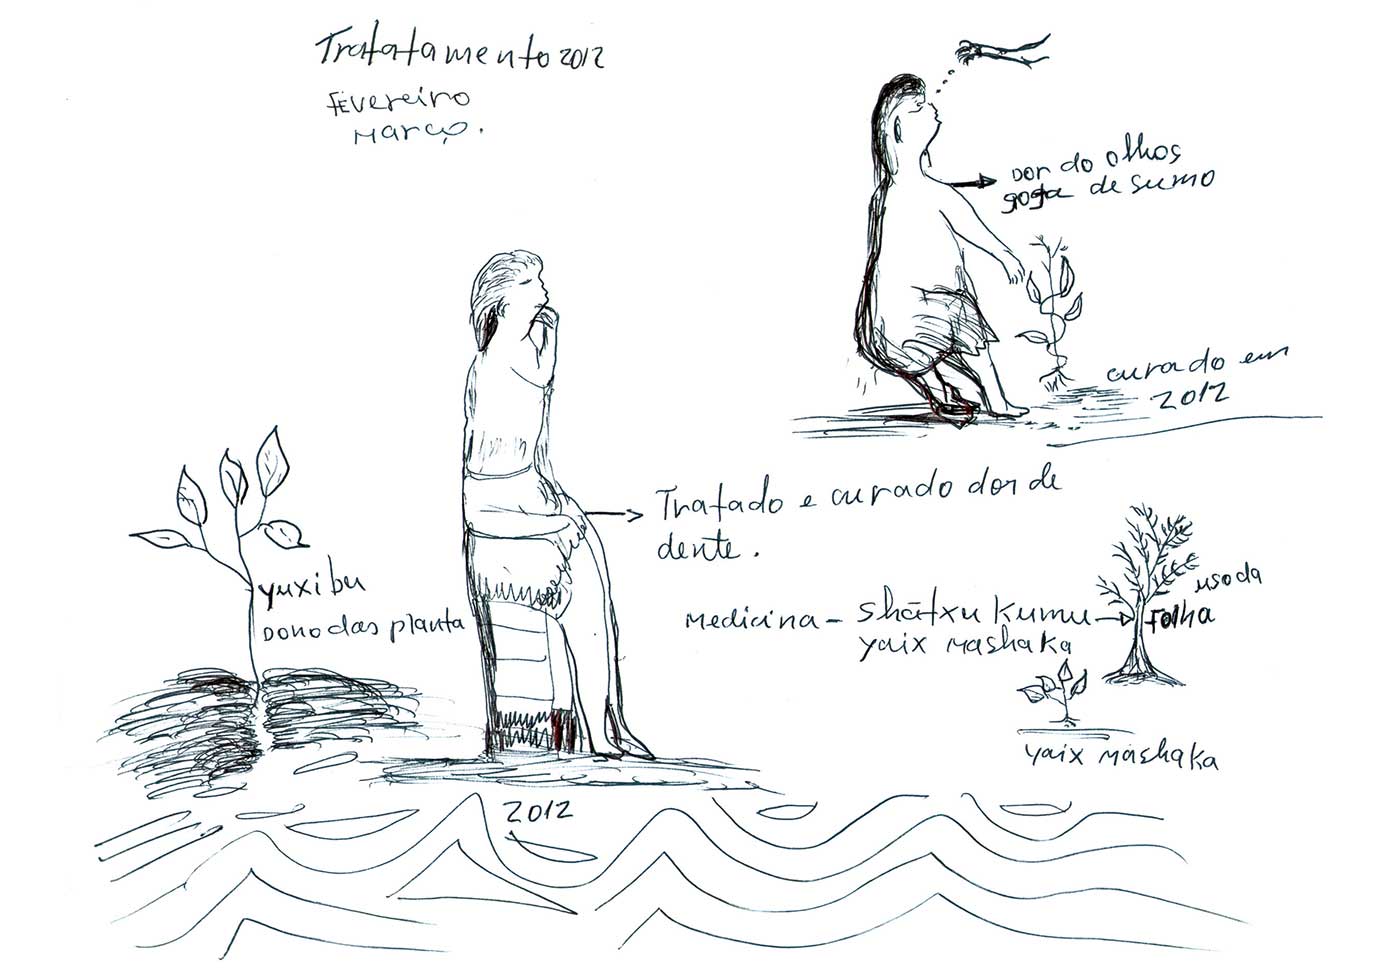 Tratatamento 2012
Fevereiro
Março.
Dor do olhos
gota de sumo
curado em
2012
Tratado e curado dor de
dente.
yuxibu
Dono das planta
Medicina - Shãtxu Kumu
yaix mashaka
uso da
Folha
yaix mashaka
2012